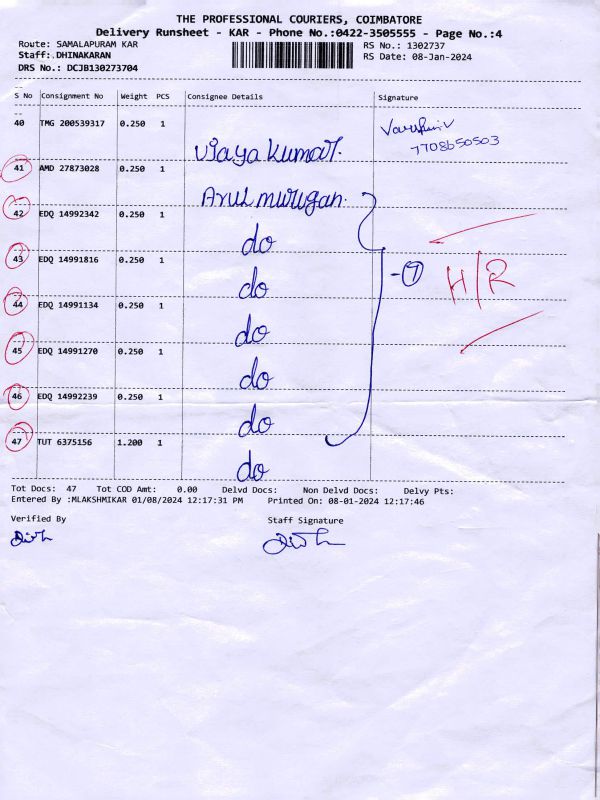 THE PROFESSIONAL COURIERS, COIMBATORE
Delivery Runsheet - KAR - Phone No.:0422-3505555 - Page No.:4
Route: SAMALAPURAM KAR RS No.: 1302737
Staff:.DHINAKARAN RS Date: 08-Jan-2024
DRS No.: DCJB130273704
S No Consignment No Weight PCS Consignee Details Signature
40 TMG 200539317 0.250 1
7708650503
Vijaya Kumar.
41 AMD 27873028 0.250 1
Arul murugan.
42 EDQ 14992342 0.250 1
do
43 EDQ 14991816 0.250 1
do
-7 H/R
44 EDQ 14991134 0.250 1
do
45 EDQ 14991270 0.250 1
do
46 EDQ 14992239 0.250 1
do
47 TUT 6375156 1.200 1
do
Tot Docs: 47 Tot COD Amt: 0.00 Delvd Docs: Non Delvd Docs: Delvy Pts:
Entered By :MLAKSHMIKAR 01/08/2024 12:17:31 PM Printed On: 08-01-2024 12:17:46
Verified By Staff Signature